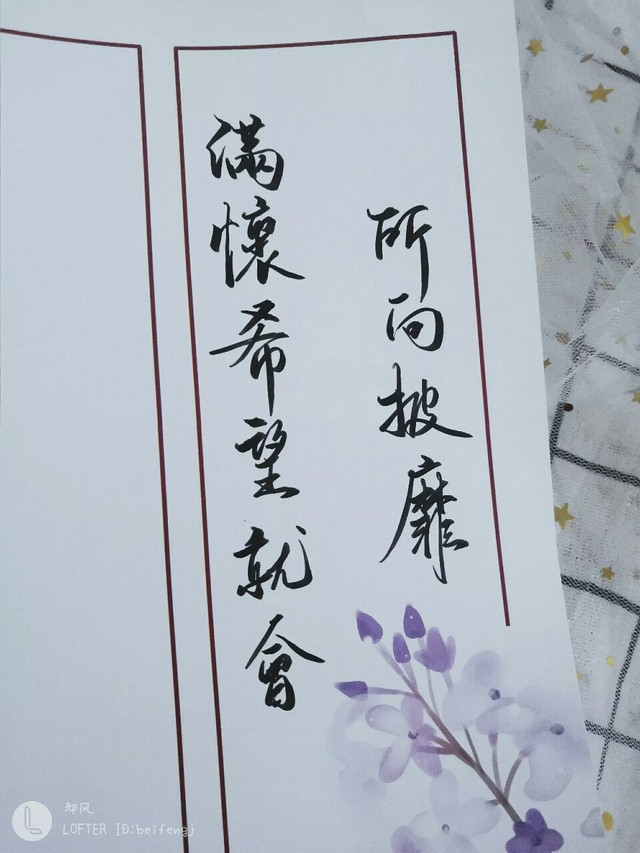 滿懷希望就會
所向披靡
邶风
LOFTER ID:beifengj